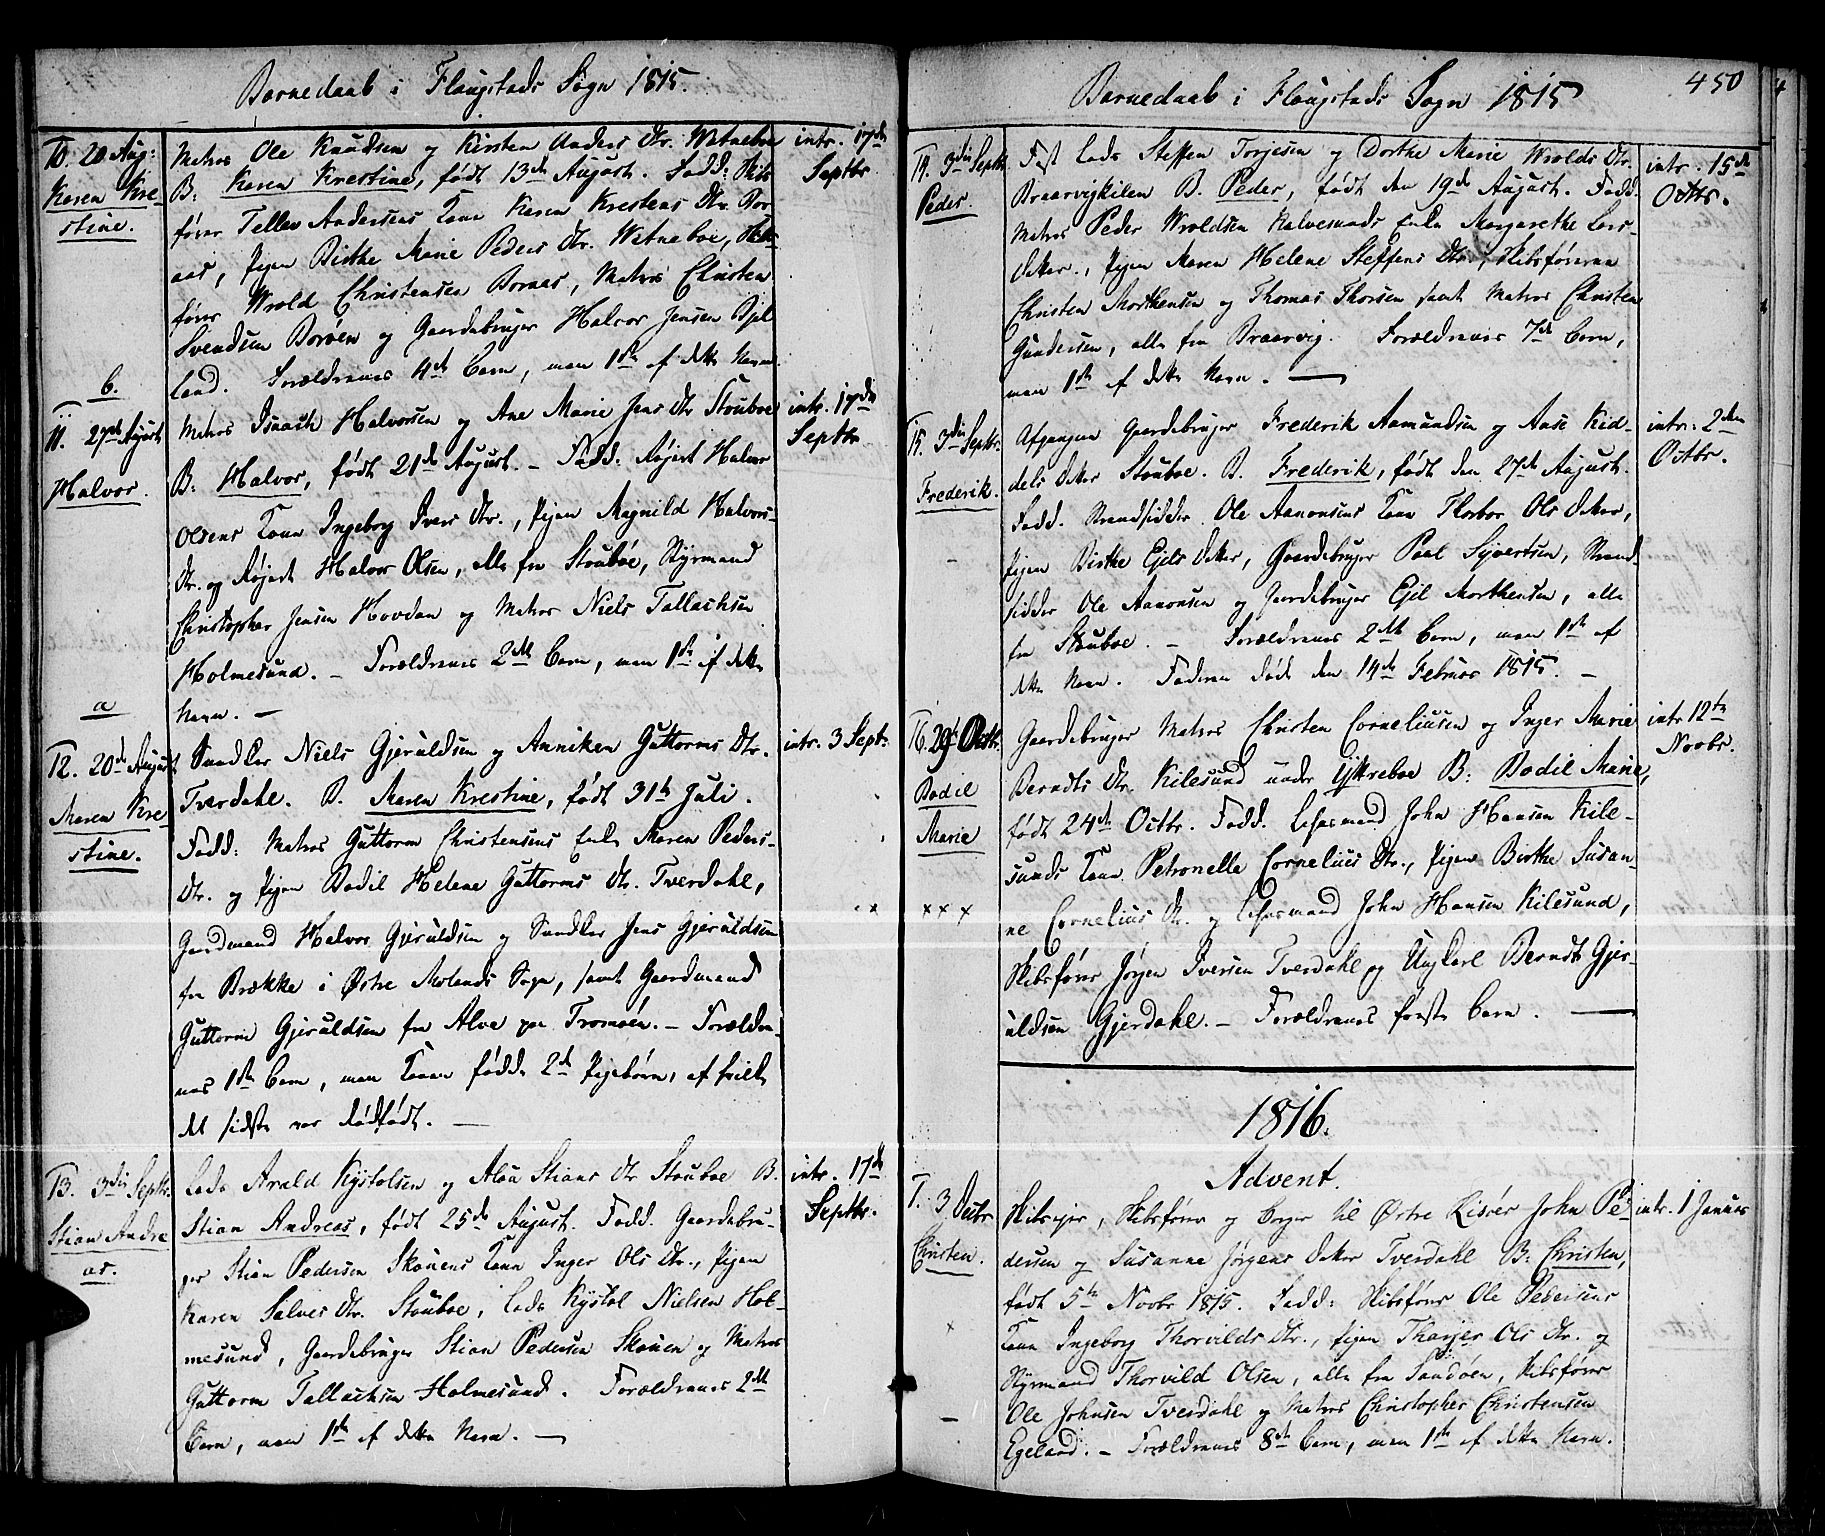 Barnedaab i Flaugstads Sogn 1815.
10. 20 Aug:
Karen Kre-
stine.
Matros Ole Knudsen og Kirsten Anders Dtr. Watneboe
B: Karen Krestine, født 13de August. Fadd: Skibs
fører Tellev Andersens Kone Karen Krestens Dtr. Bor
aas, Pigen Birthe Marie Peders Dtr. Watneboe, Skibs
fører Wrold Christensen Boraas, Matros Christen
Svendsen Borøen og Gaardebruger Halvor Jensen Bjel
land. Forældrenes 4de Barn, men 1ste af dette Navn.
intr. 17de
Septbr
b.
11. 27de August
Halvor.
Matros Isaach Halvorsen og Ane Marie Jens Dtr Stouboe
B: Halvor, født 21de August. - Fadd. Halvor
Olsens Kone Ingeborg Ivers Dtr., Pigen Magnild Halvors-
Dtr. og Halvor Olsen, alle fra Stouboe, Styrmand
Christopher Jensen Hovdan og Matros Niels Tallachsen
Holmesund. - Forældrenes 2det Barn, men 1ste af dette
Navn. -
intr. 17de
Septbr
a
12. 20de August
Maren Kre-
stine.
Niels Gjeruldsen og Anniken Guttorms Dtr.
Tverdahl. B. Maren Krestine, født 31te Juli.
Fadd: Matros Guttorm Christensens Enke Maren Peders-
Dtr. og Pigen Bodil Helene Guttorms Dtr. Tverdahl,
Gaardmand Halvor Gjeruldsen og Jens Gjeruldsen
fra Brække i Østre Molands Sogn, samt Gaardmand
Guttorm Gjeruldsen fra Alve paa Tromøen. - Forældre-
nes 1ste Barn, men Konen fødde 2de Pigebørn, af hvilke
det sidste var dødfødt. -
intr. 3 Sept.
13. 3die Septbr.
Stian Andre
as.
Lods Arald Kystolsen og Aloa Stians Dtr Stouboe B.
Stian Andreas, født 25de August. Fadd. Gaardebru-
ger Stian Pedersen Skouens Kone Inger Ols Dtr., Pigen
Karen Salves Dtr. Stouboe, Lods Kystol Nielsen Hol-
mesund, Gaardebruger Stian Pedersen Skouen og Matros
Guttorm Tallachsen Holmesund. Forældrenes 2det
Barn, men 1ste af dette Navn. -
intr. 17de
Septbr.
Barnedaab i Flaugstads Sogn 1815
450
14. 3die Septbr.
Peder.
Fast Lods Steffen Torjesen og Dorthe Marie Wrolds Dtr.
Braarvigkilen B. Peder, født den 19de August. Fadd.
Matros Peder Wroldsen Nalvesunds Enke Margarethe Lars-
Datter, Pigen Maren Helene Steffens Dtr., Skibsførerne
Christen Morthensen og Thomas Thorsen samt Matros Christen
Gundersen, alle fra Braarvig. Forældrenes 7de Barn,
men 1ste af dette Navn. -
intr. 15de
Octbr.
15. 3die Septbr.
Frederik.
Afgangen Gaardebruger Frederik Aamundsen og Aase Kid-
dels Datter Stouboe. B. Frederik, født den 27de August.
Fadd. Strandsidder Ole Aanonsens Kone Thorbor Ols Datter,
Pigen Birthe Ejels Datter, Gaardebruger Paal Syvertsen, Strand-
sidder Ole Aanonsen og Gaardebruger Ejel Morthensen, alle
fra Stouboe. - Forældrenes 2det Barn, men 1ste af
dette Navn. Faderen døde den 14de Februar 1815. -
intr. 2den
Octbr.
16. 29de Octbr.
Bodil
Marie
x x x
Gaardebruger Matros Christen Corneliusen og Inger Marie
Berndts Dtr. Kilesund under Yttreboe B: Bodil Marie,
født 24de Octbr. Fadd. John Hansen Kile-
sunds Kone Petronelle Cornelius Dtr., Pigen Birthe Susan-
ne Cornelius Dtr. og John Hansen Kilesund,
Skibsfører Jørgen Iversen Tverdahl og Ungkarl Berndt Gjer-
uldsen Gjerdahl. - Forældrenes første Barn. -
intr 12te
Novbr.
1816.
Advent.
1. 3 Decbr
Christen.
Skibsejer, Skibsfører og Borger til Østre Risøer John Pe-
dersen og Susanne Jørgens Datter Tverdahl B: Christen,
født 5te Novbr 1815. Fadd: Skibsfører Ole Pedersens
Kone Ingeborg Thorvilds Dtr., Pigen Tharjer Ols Dtr. og
Styrmand Thorvild Olsen, alle fra Sandøen, Skibsfører
Ole Johnsen Tverdahl og Matros Christopher Christensen
Egeland. - Forældrenes 8de Barn, men 1ste af dette Navn.
intr. 1 Januar